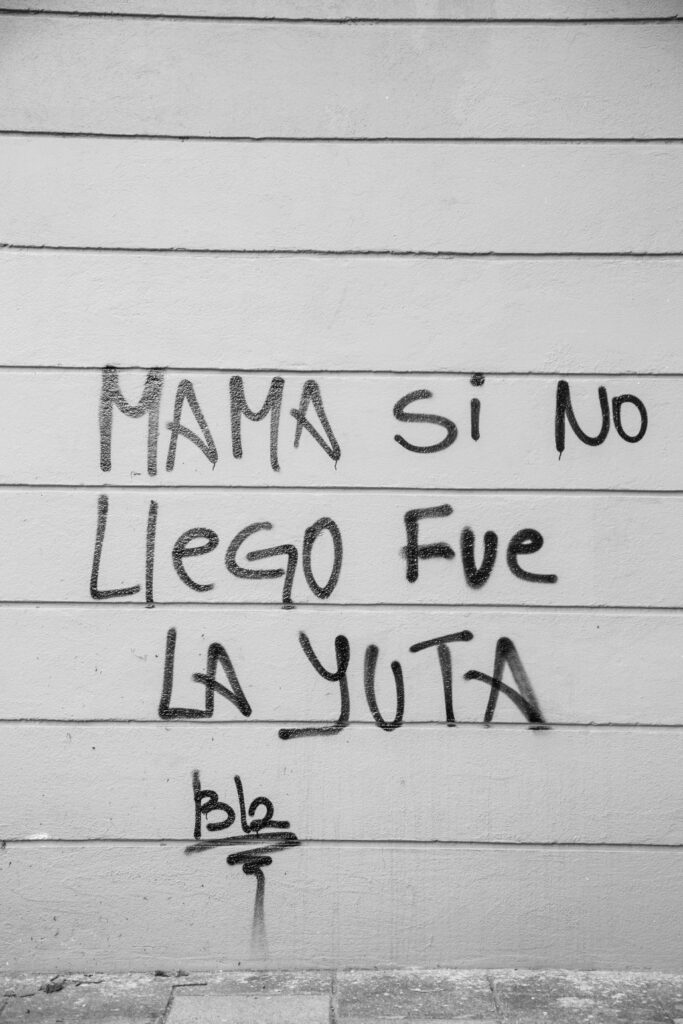 MAMA Si NO
LlEGO FUe
LA YUTA
Bl2